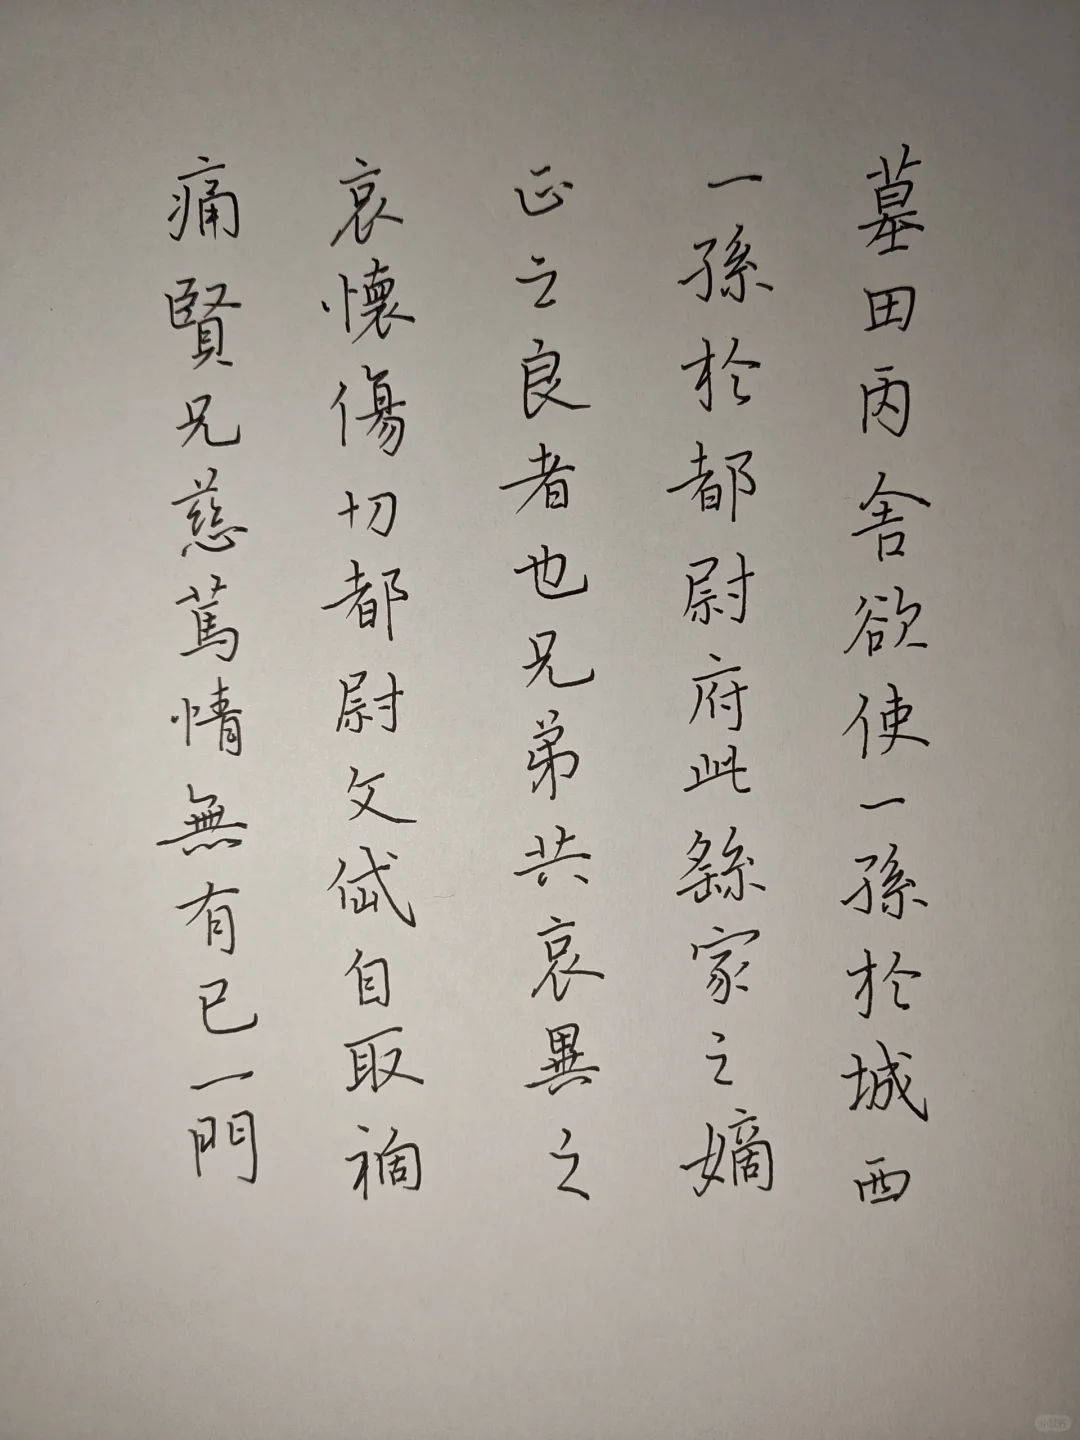 墓田丙舍欲使一孫於城西
一孫於都尉府此繇家之嫡
正之良者也兄弟共哀異之
哀懷傷切都尉文岱自取禍
痛賢兄慈篤情無有已一門